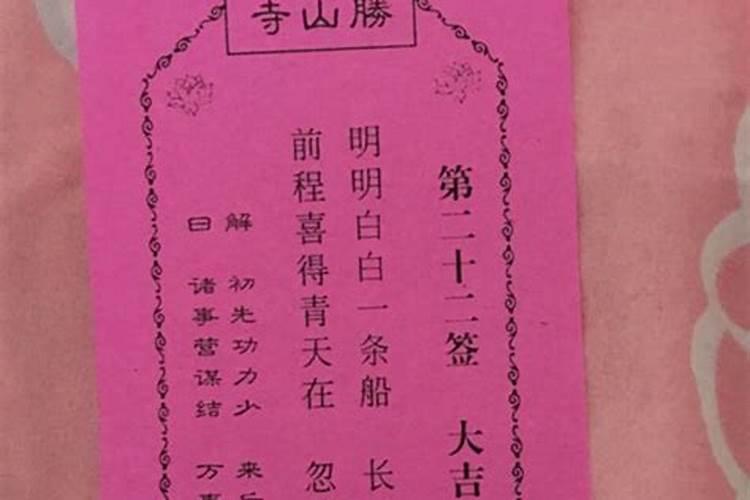 勝山寺
第二十二签 大吉
明明白白一条船 长
前程喜得青天在 忽
解 初先功力少 来
曰 诸事营谋结 万事